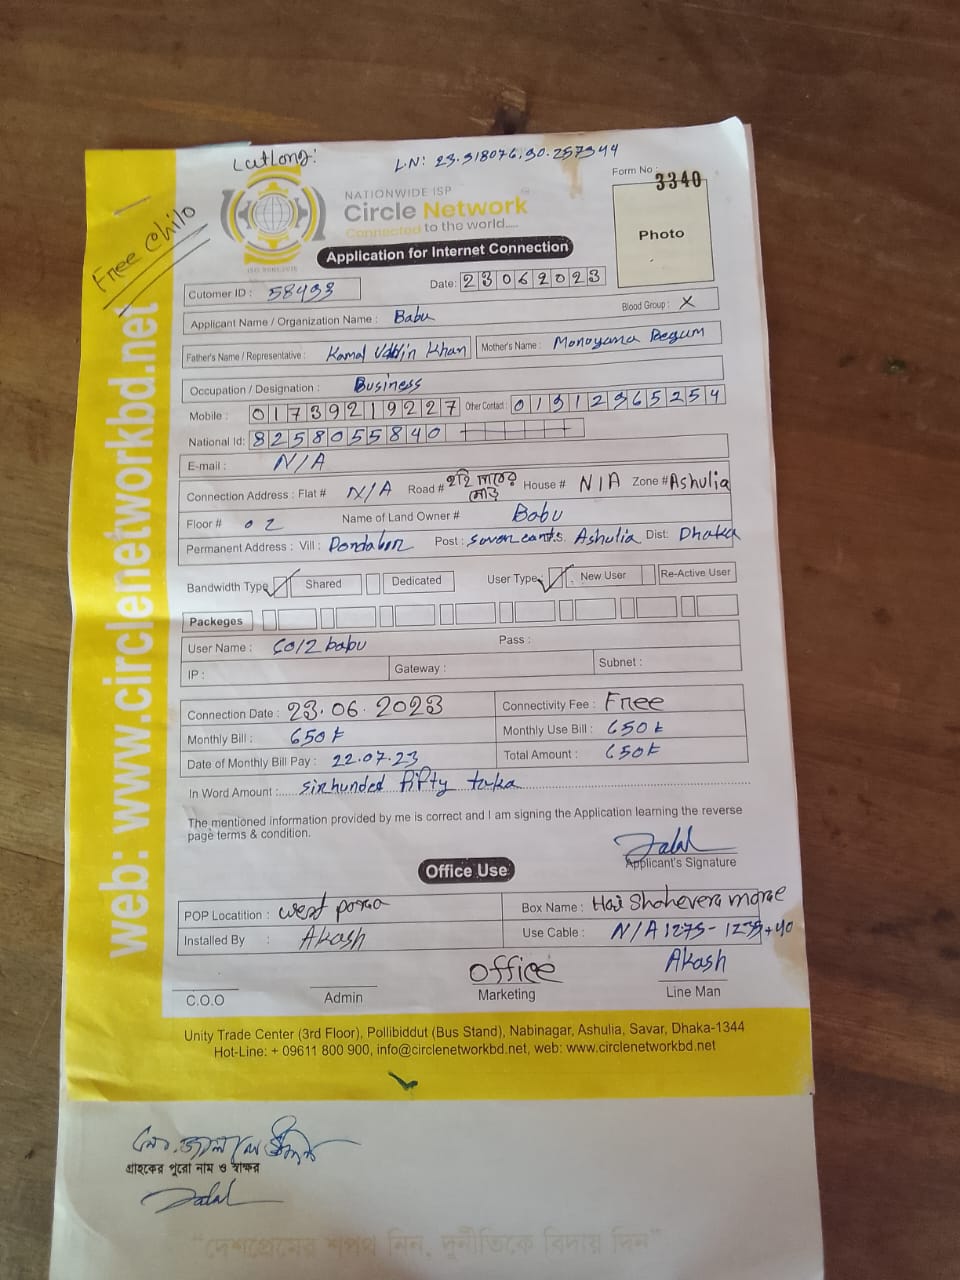 Latlong:
LN: 23.918076,90.257344
Form No : 3340
NATIONWIDE ISP
Circle Network
Connected to the world.....
ISO 9001:2015
Free Chilo
Photo
Application for Internet Connection
Cutomer ID : 58493
Date: 23062023
Applicant Name / Organization Name : Babu
Blood Group : X
Father's Name / Representative : Kamal Uddin Khan
Mother's Name : Monoyana Begum
Occupation / Designation : Business
Mobile : 01739219227
Other Contact : 01312365254
National Id: 8258055840
E-mail : N/A
Connection Address : Flat # N/A Road # House # N/A Zone # Ashulia
Floor # 02 Name of Land Owner # Babu
Permanent Address : Vill : Post : Ashulia Dist: Dhaka
Bandwidth Type Shared Dedicated User Type: New User Re-Active User
Packeges
User Name : Pass :
IP : Gateway : Subnet :
Connection Date : 23.06.2023 Connectivity Fee : Free
Monthly Bill : 650 ৳ Monthly Use Bill : 650 ৳
Date of Monthly Bill Pay : 22.07.23 Total Amount : 650 ৳
In Word Amount :..... sixhunded fifty taka
The mentioned information provided by me is correct and I am signing the Application learning the reverse
page terms & condition.
Jalal
Applicant's Signature
Office Use
POP Locatition : west para Box Name :
Installed By : Akash Use Cable : N/A
Office
Akash
C.O.O Admin Marketing Line Man
web: www.circlenetworkbd.net
Unity Trade Center (3rd Floor), Pollibiddut (Bus Stand), Nabinagar, Ashulia, Savar, Dhaka-1344
Hot-Line: + 09611 800 900, info@circlenetworkbd.net, web: www.circlenetworkbd.net
গ্রাহকের পুরো নাম ও স্বাক্ষর
Jalal
"দেশপ্রেমের শপথ নিন, দুর্নীতিকে বিদায় দিন"